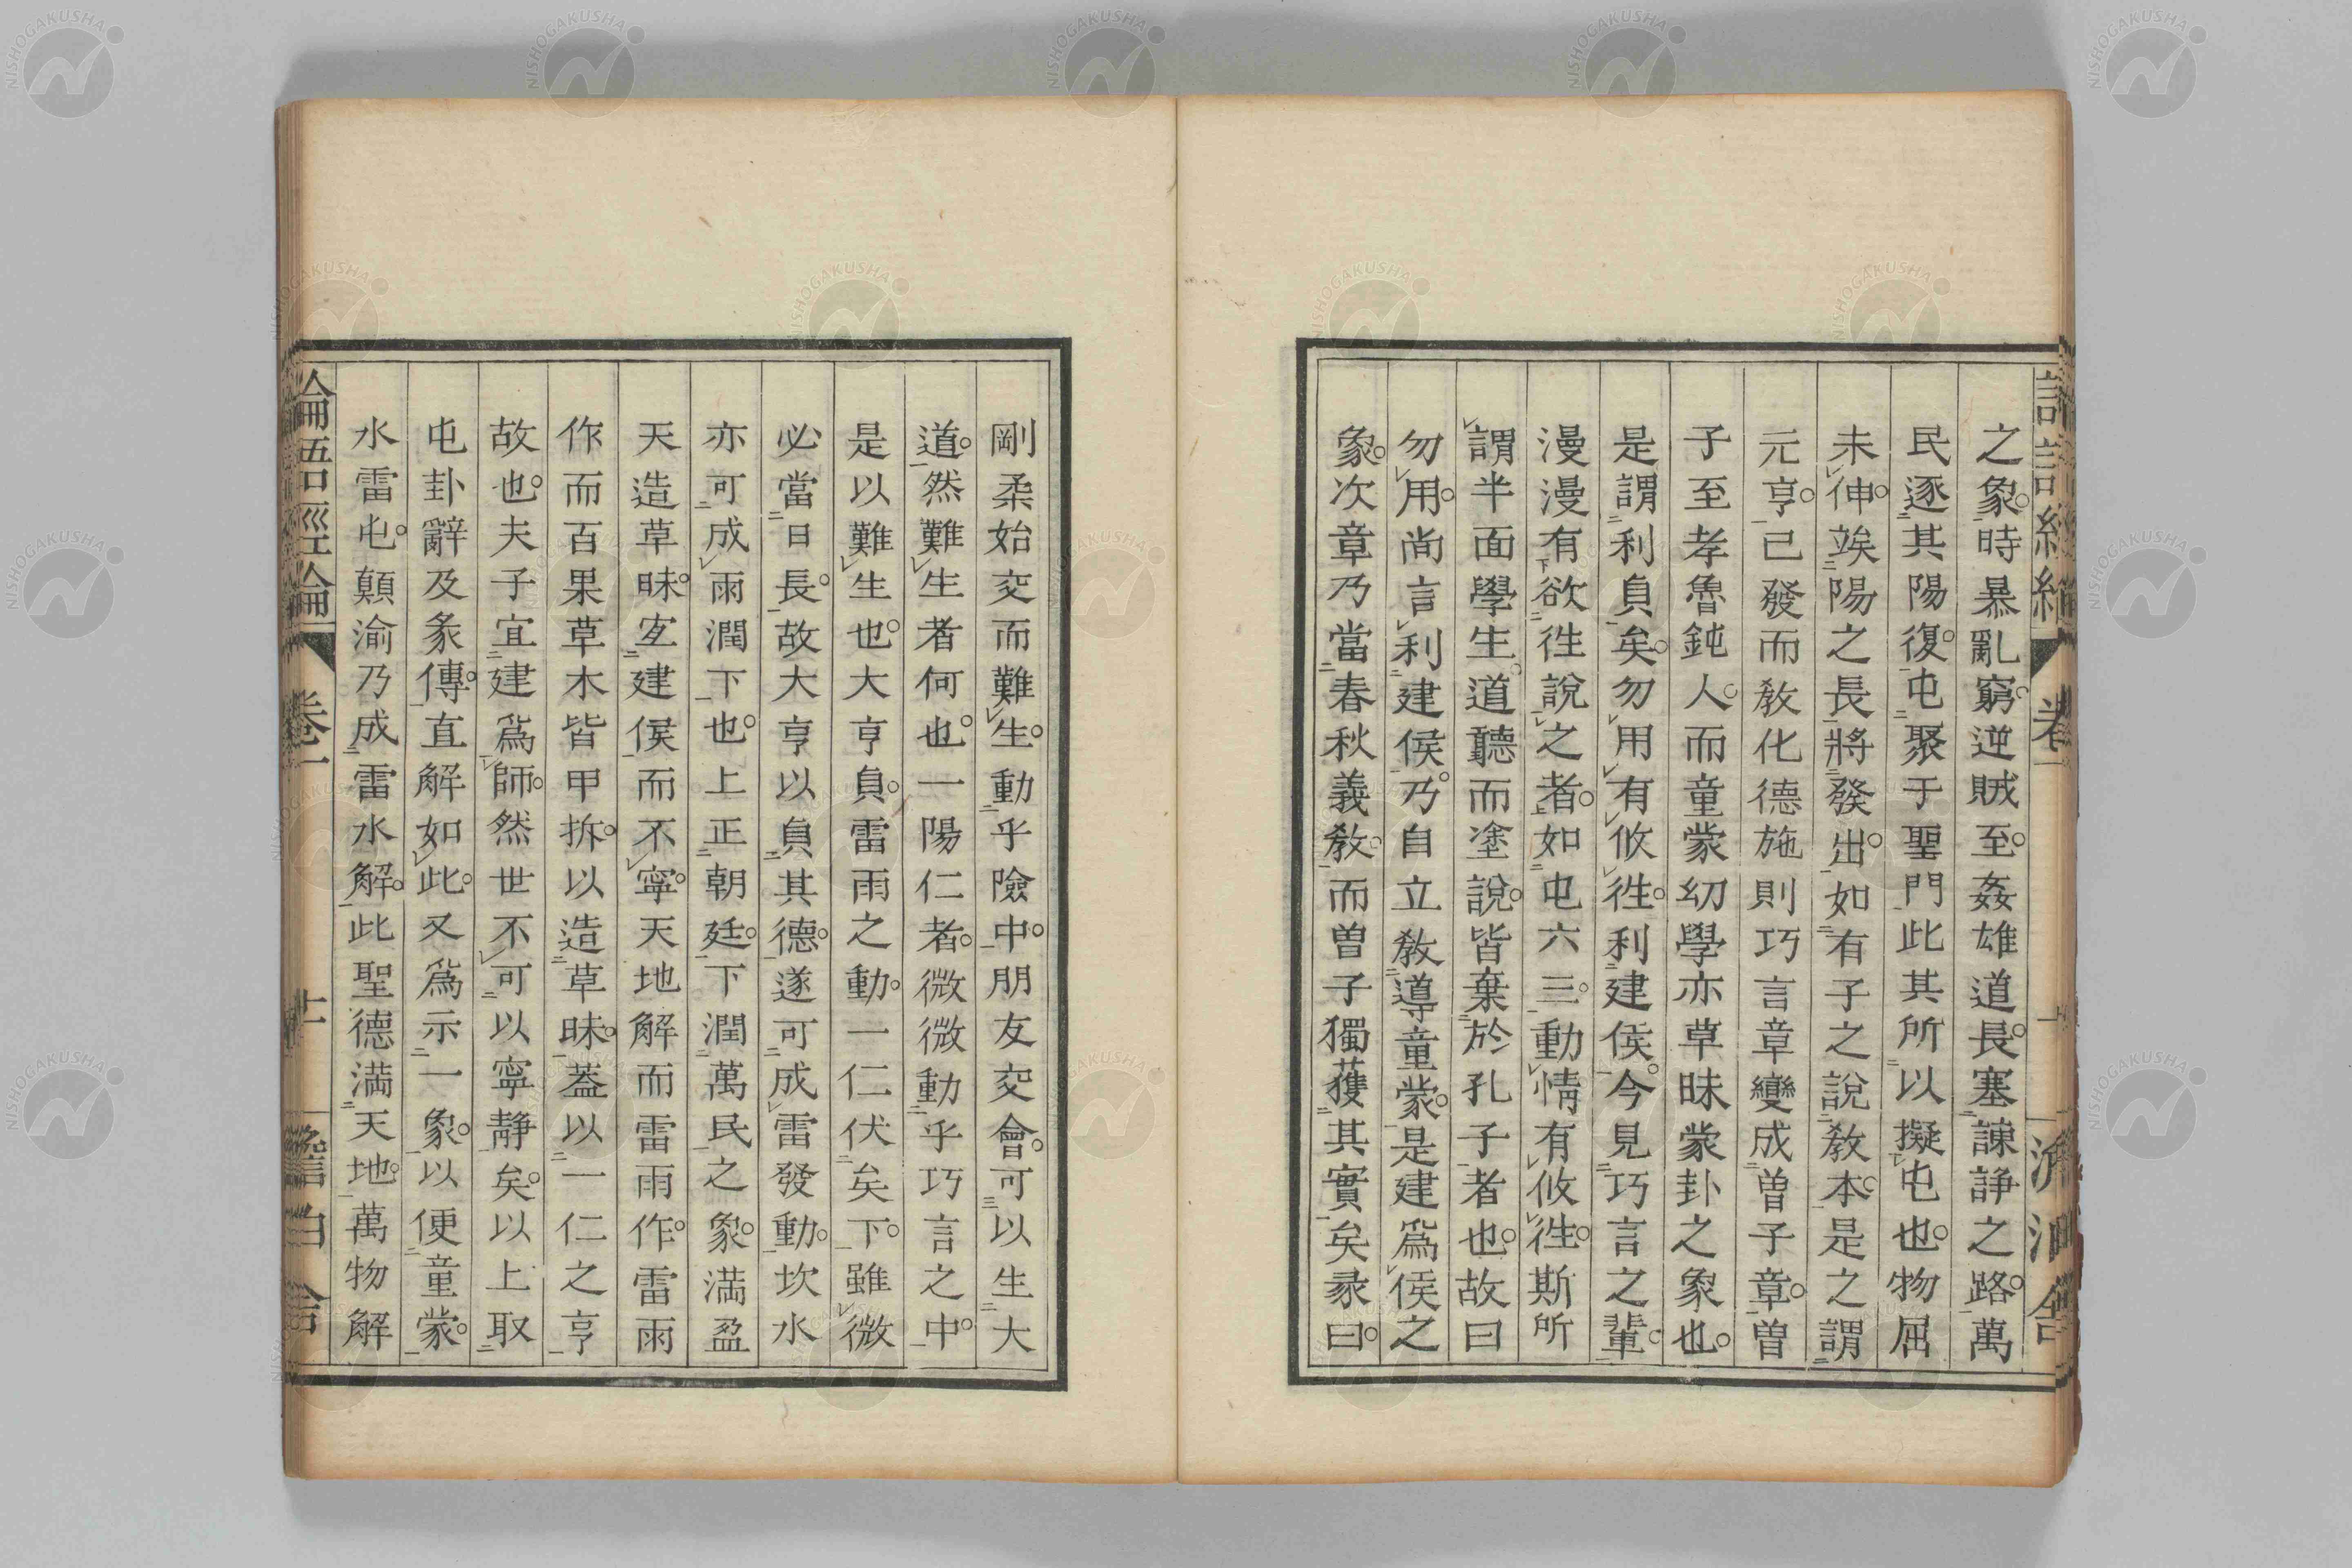 之象。時暴亂窮。逆賊至。姦雄道長。塞諫諍之路。萬
民逐其陽復。屯聚于聖門此其所以擬屯也。物屈
未伸。竢陽之長將發出。如有子之說教本。是之謂
元亨。已發而教化德施則巧言章變成曽子章。曽
子至孝魯鈍人。而童蒙幼學亦草昧蒙卦之象也。
是謂利貞矣。勿用有攸徃。利建侯。今見巧言之輩。
漫漫有欲徃說之者。如屯六三。動情有攸徃。斯所
謂半面學生。道聽而塗說。皆棄於孔子者也。故曰
勿用。尚言利建侯。乃自立教導童蒙。是建爲侯之
象。次章乃當春秋義教。而曽子獨獲其實矣彖曰。
剛柔始交而難生。動乎險中。朋友交會。可以生大
道。然難生者何也。一陽仁者。微微動乎巧言之中。
是以難生也。大亨貞。雷雨之動。一仁伏矣下。雖微
必當日長。故大亨以貞其德。遂可成雷發動。坎水
亦可成雨潤下也。上正朝廷。下潤萬民之象。満盈
天造草昧。宜建侯而不寧。天地解而雷雨作。雷雨
作而百果草木皆甲拆。以造草昧。蓋以一仁之亨
故也。夫子宜建爲師。然世不可以寧静矣。以上取
屯卦辭及彖傳。直解如此。又爲示一象。以便童蒙。
水雷屯。顛渝乃成雷水解。此聖德満天地。萬物解
論語經綸
卷一
NISHOGAKUSHA